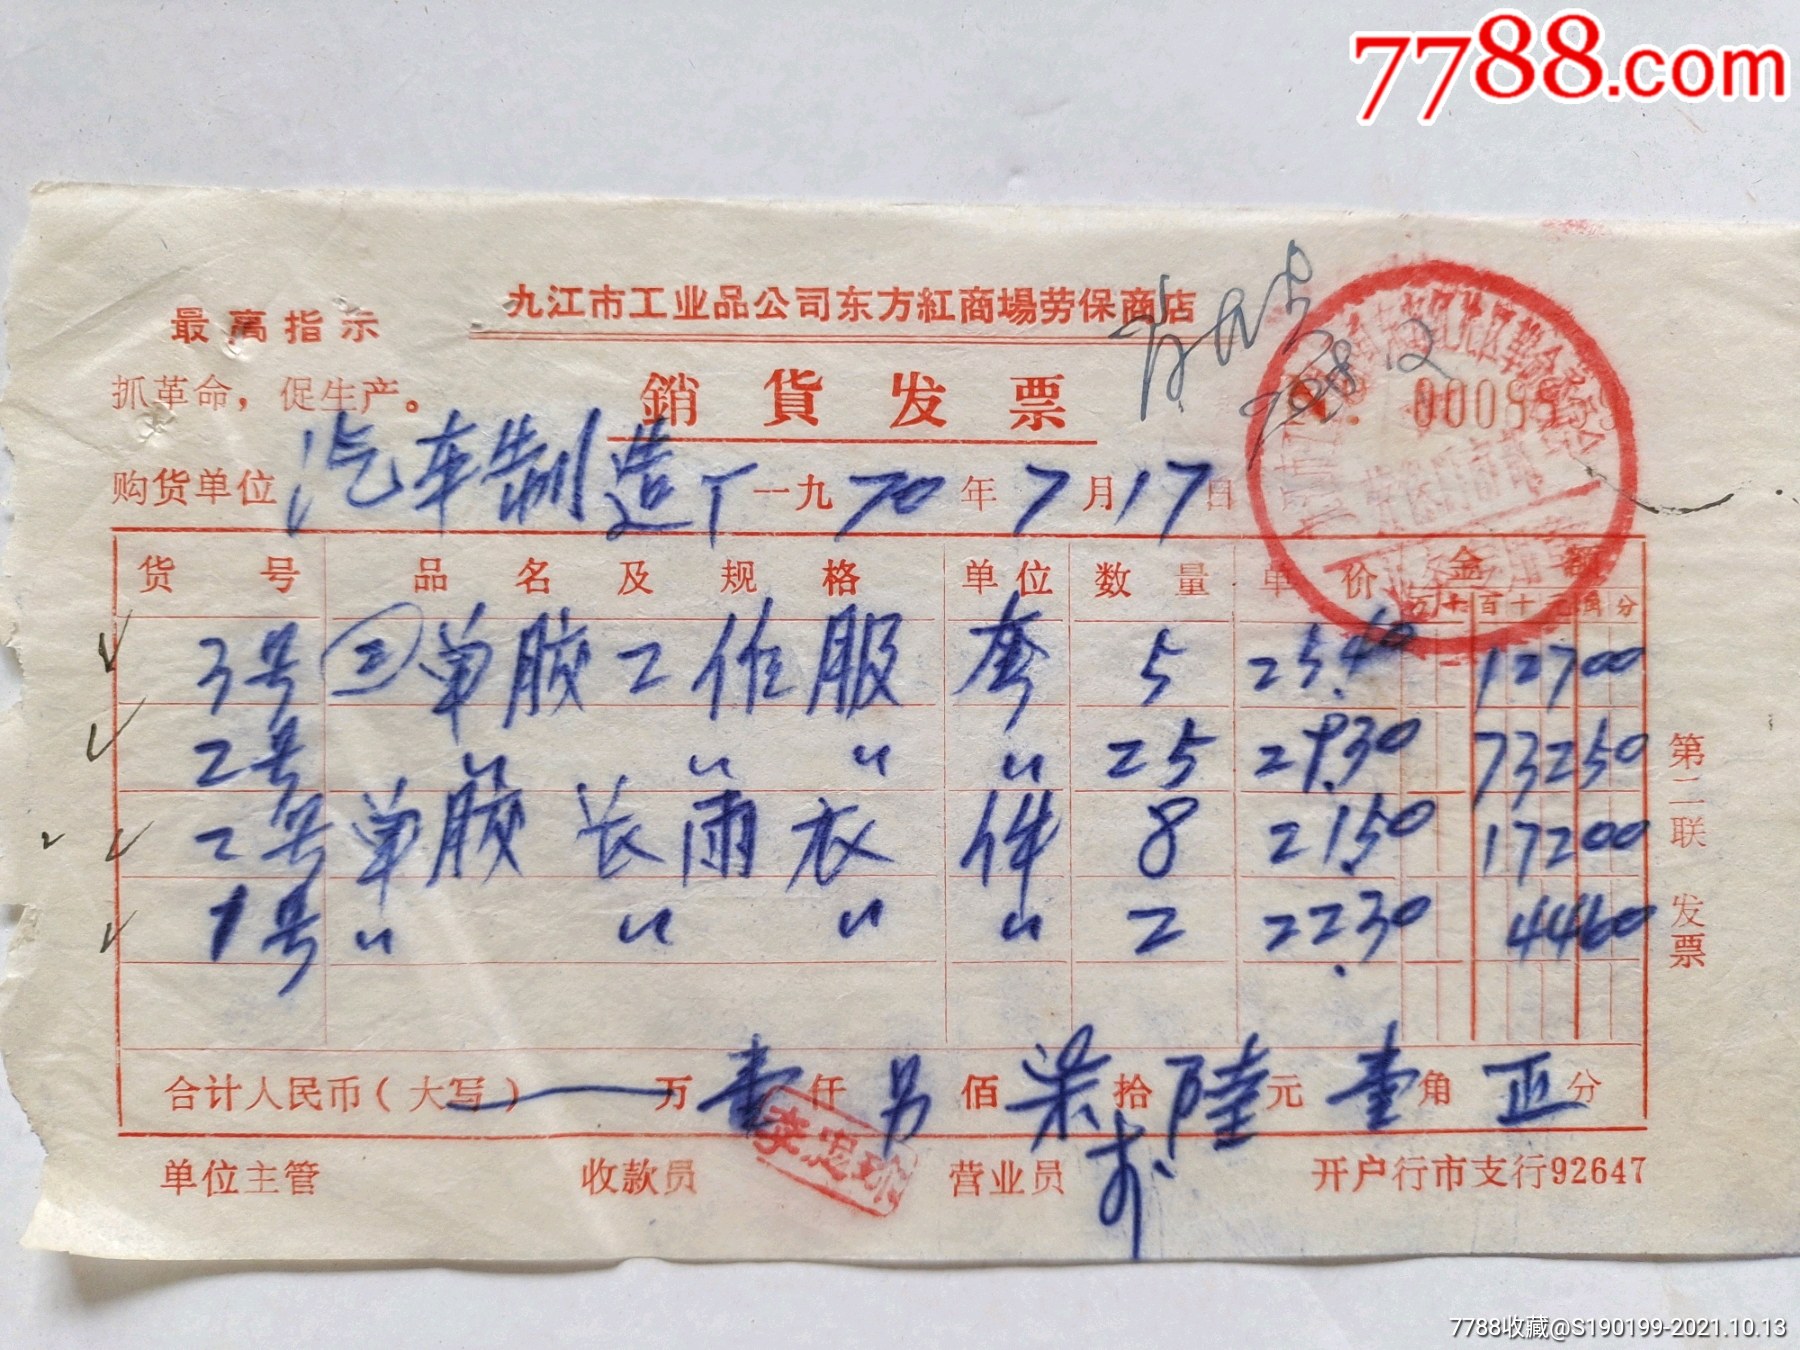 7788.com
九江市工业品公司东方紅商場劳保商店
最高指示
抓革命，促生产。
銷貨发票
购货单位 汽车制造厂 一九70年7月17日
货号 品名及规格 单位 数量 单价 金额
万 千 百 十 元 角 分
3号 单胶工作服 套 5 25.40 12700
2号 〃 〃 〃 〃 25 29.30 73250
2号 单胶长雨衣 件 8 21.50 17200
1号 〃 〃 〃 〃 2 22.30 4460
合计人民币（大写） 万 壹仟 另佰 柒拾 陸元 壹角 正分
单位主管 收款员 李忠 营业员 开户行市支行92647
第二联 发票
7788收藏@S190199-2021.10.13